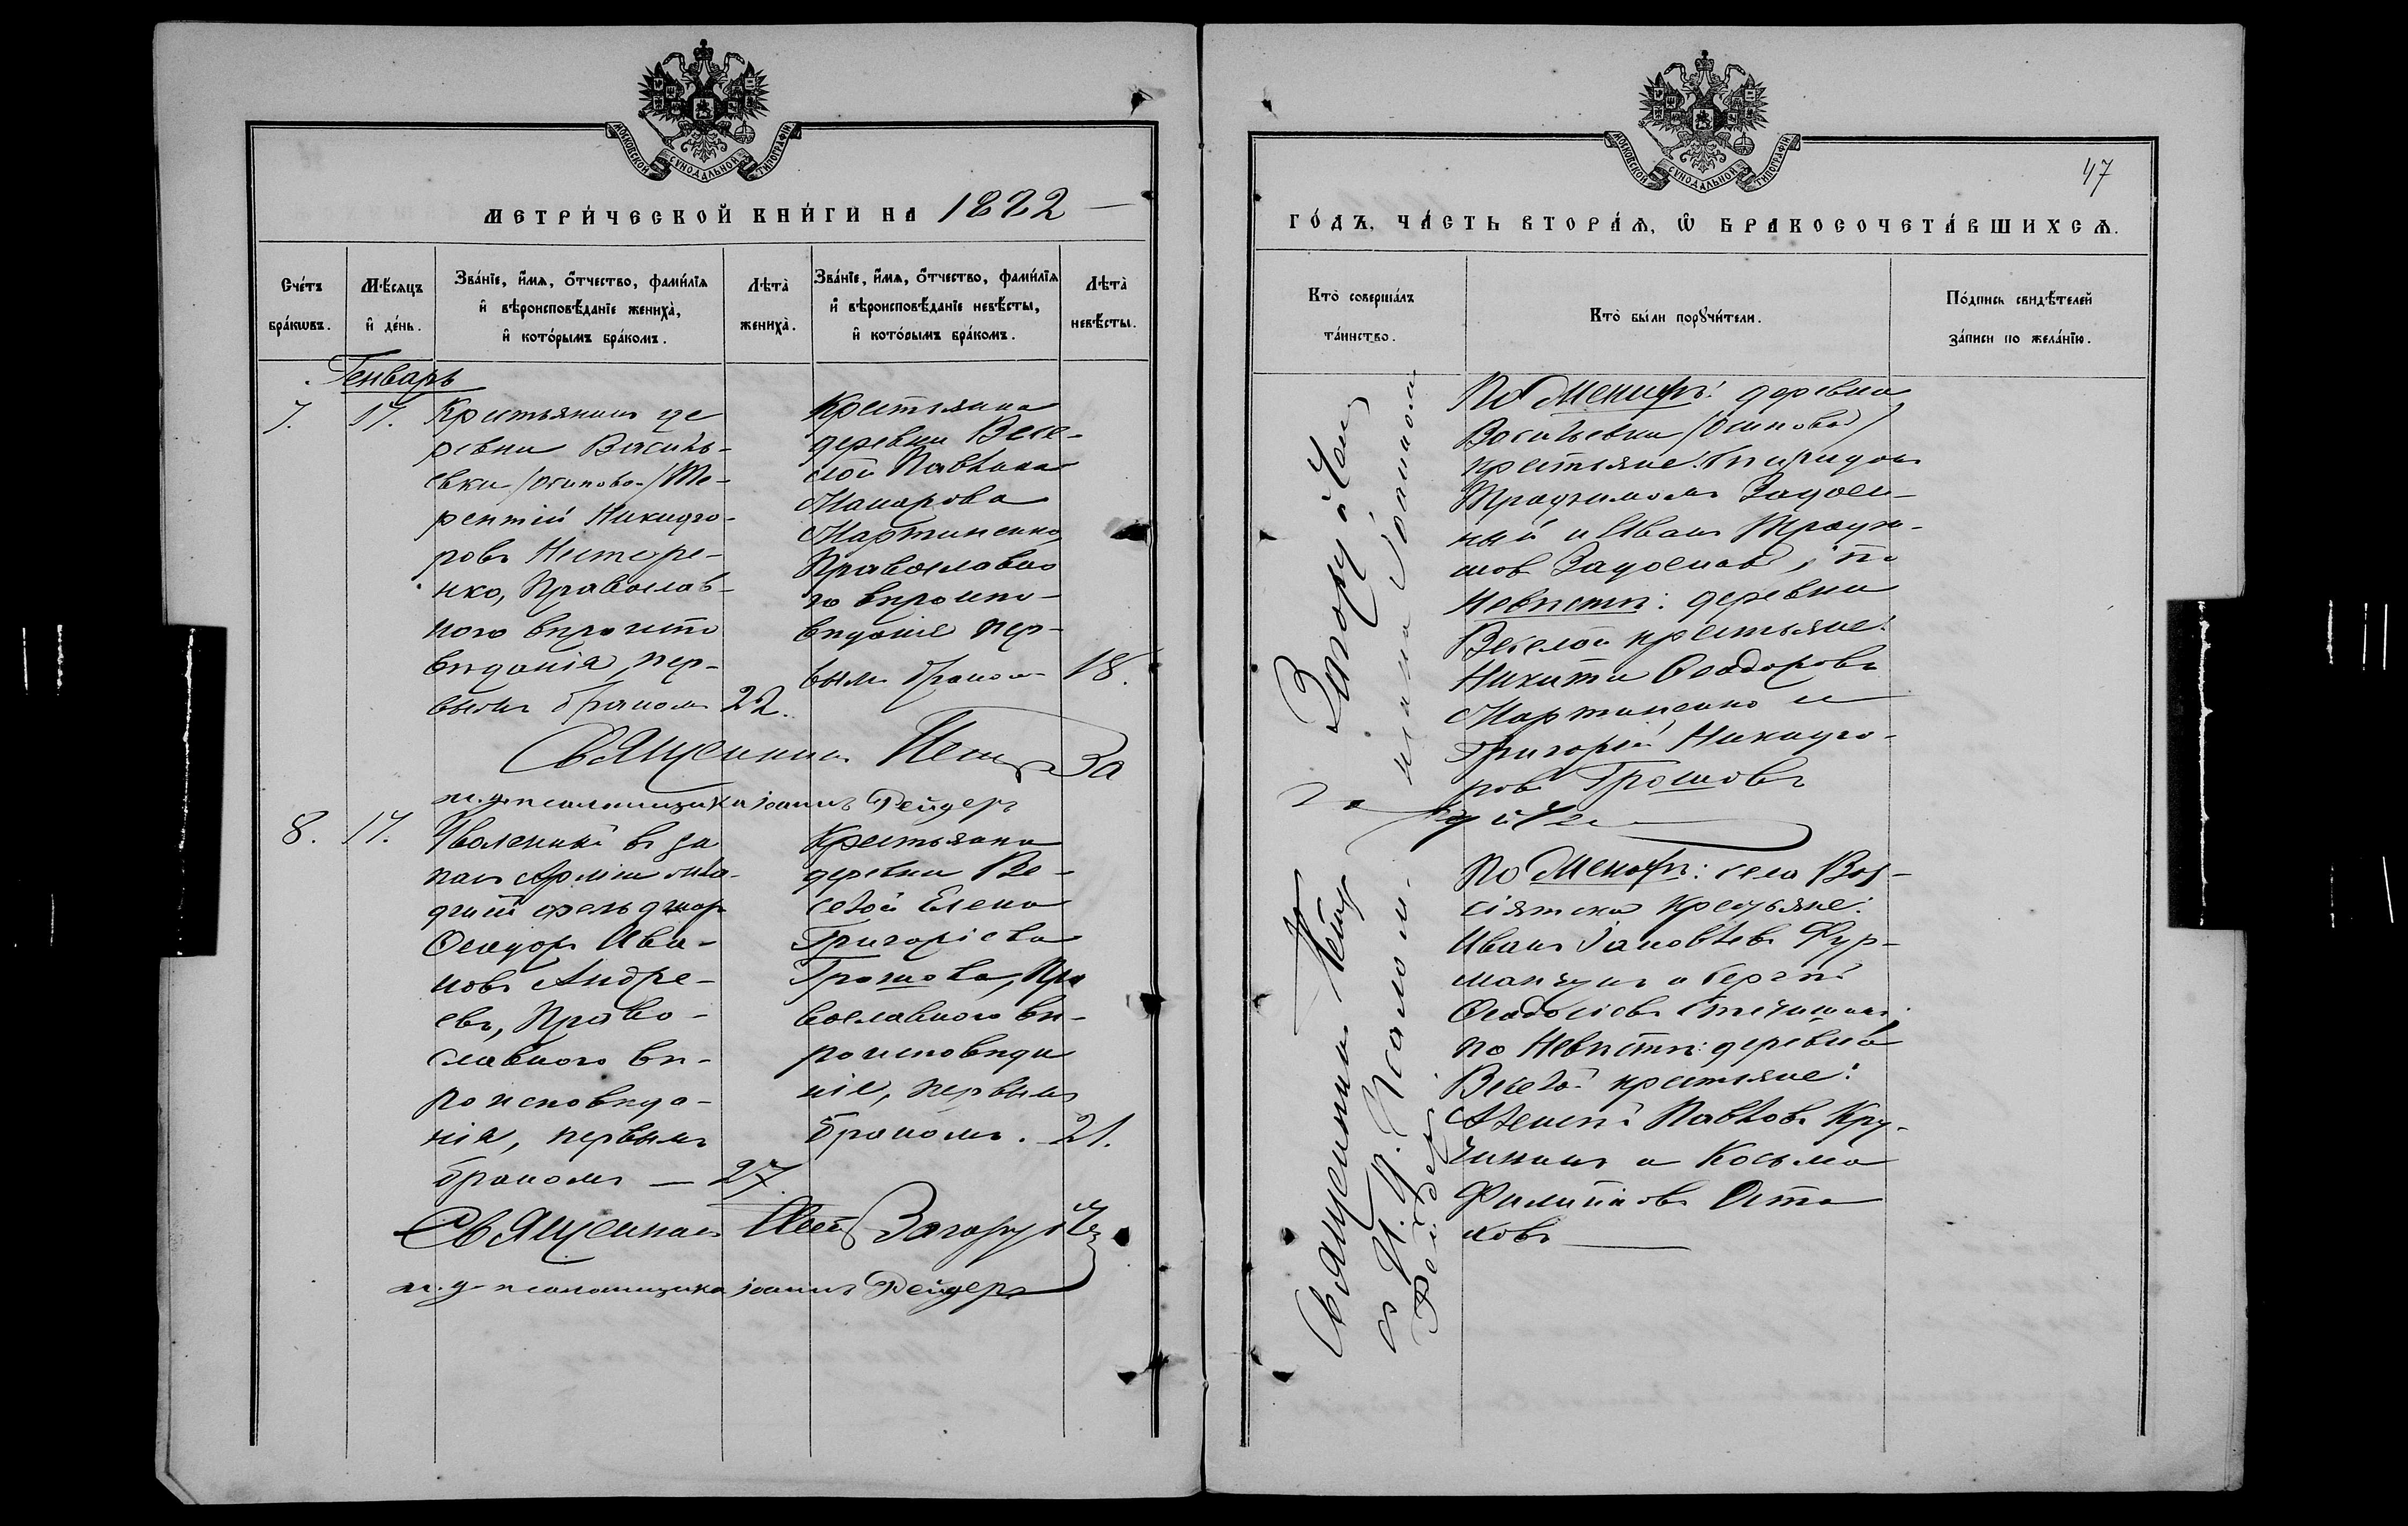 МОСКОВСКОЙ СѴНОДАЛЬНОЙ ТИПОГРАФІИ
МЕТРИ́ЧЕСКОЙ КНИ́ГИ НА 1882
Сче́тъ бра́кѡвъ.
Мѣ́сяцъ и҆ де́нь.
Зва́нїе, и҆́мѧ, ѻ҆́тчество, фами́лїѧ и҆ вѣроисповѣ́данїе жениха̀, и҆ кото́рымъ бра́комъ.
Лѣта̀ жениха̀.
Зва́нїе, и҆́мѧ, ѻ҆́тчество, фами́лїѧ и҆ вѣроисповѣ́данїе невѣ́сты, и҆ кото́рымъ бра́комъ.
Лѣта̀ невѣ́сты.
Генварь
7.
17.
Крестьянинъ де
ревни Василь-
евки /Осипова/ Те-
рентій Никифо-
ровъ Нестере-
нко, Православ-
ного вѣроиспо
вѣданія, пер-
вымъ бракомъ
22.
Крестьянка
деревни Весе-
лой Павлина
Макарова
Мартиненко,
Православно
го вѣроиспо-
вѣданіе пер-
вымъ бракомъ
18.
Священникъ Петръ За
и.д. псаломщика Іоаннъ Рейдеръ
8.
17.
Уволенный въ за
пасъ Арміи мла-
дшій фельдшеръ
Феодоръ Ива-
новъ Андре-
евъ, Право-
славного вѣ-
роисповѣда-
нія, первымъ
бракомъ —
27.
Крестьянка
деревни Ве-
селой Елена
Григоріева
Грошова, Пра
вославного вѣ-
роисповѣда
ніе, первымъ
бракомъ.
21.
Священникъ Петръ Загоруйче
и.д. псаломщика Іоаннъ Рейдеръ
МОСКОВСКОЙ СѴНОДАЛЬНОЙ ТИПОГРАФІИ
47
ГО́ДЪ, ЧА́СТЬ ВТОРА́Ѧ, Ѡ҆ БРАКОСОЧЕТА́ВШИХСѦ.
Кто̀ соверша́лъ та́инство.
Кто̀ бы́ли порꙋчи́тели.
По́дпись свидѣ́телей за́писи по жела́нїю.
Священникъ Петръ Загоруйче
Рейдеръ
По Жениху: деревни
Васильевки /Осиповой/
крестьяне: Спиридонъ
Трофимовъ Задоен-
ный и Иванъ Трофи-
мовъ ; по
Невѣстѣ: деревни
Веселой крестьяне:
Никита Феодоровъ
Мартиненко и
Григорій Никифо-
ровъ Грошовъ
По Женихѣ: села Воз-
сіятска Крестьяне:
Иванъ Іаковлевъ Фур-
манчукъ и Сергѣй
Феодосіевъ
по Невѣстѣ: деревни
Веселой крестьяне:
Алексѣй Павловъ Кру-
чининъ и Косьма
Филиповъ Оста
ковъ